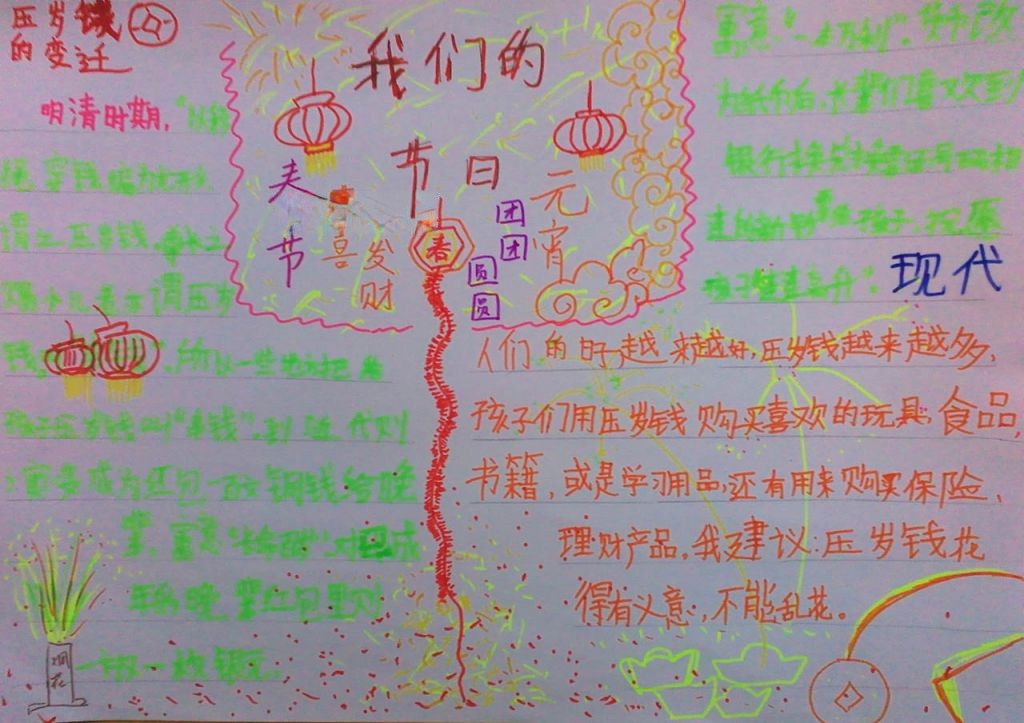 压岁钱
的变迁
明清时期，"以彩
绳穿钱编为龙形，
谓之压岁钱。尊长之
赐小儿者，亦谓压岁
钱。"所以一些地方把给
孩子压岁钱叫"串钱"。到近代则
演变成为红包一百文铜钱给晚
辈，寓意"长命百岁"。对已成
年的晚辈红包里则
一枚银元，
寓意"一本万利"。货币改
为纸币后，长辈们喜欢到
银行
孩子
我们的
节日
春节
喜
发财
春
元宵
团团
圆圆
现代
人们的日子越来越好，压岁钱越来越多，
孩子们用压岁钱购买喜欢的玩具，食品，
书籍，或是学习用品，还有用来购买保险、
理财产品。我建议：压岁钱花
得有义意，不能乱花。
烟花